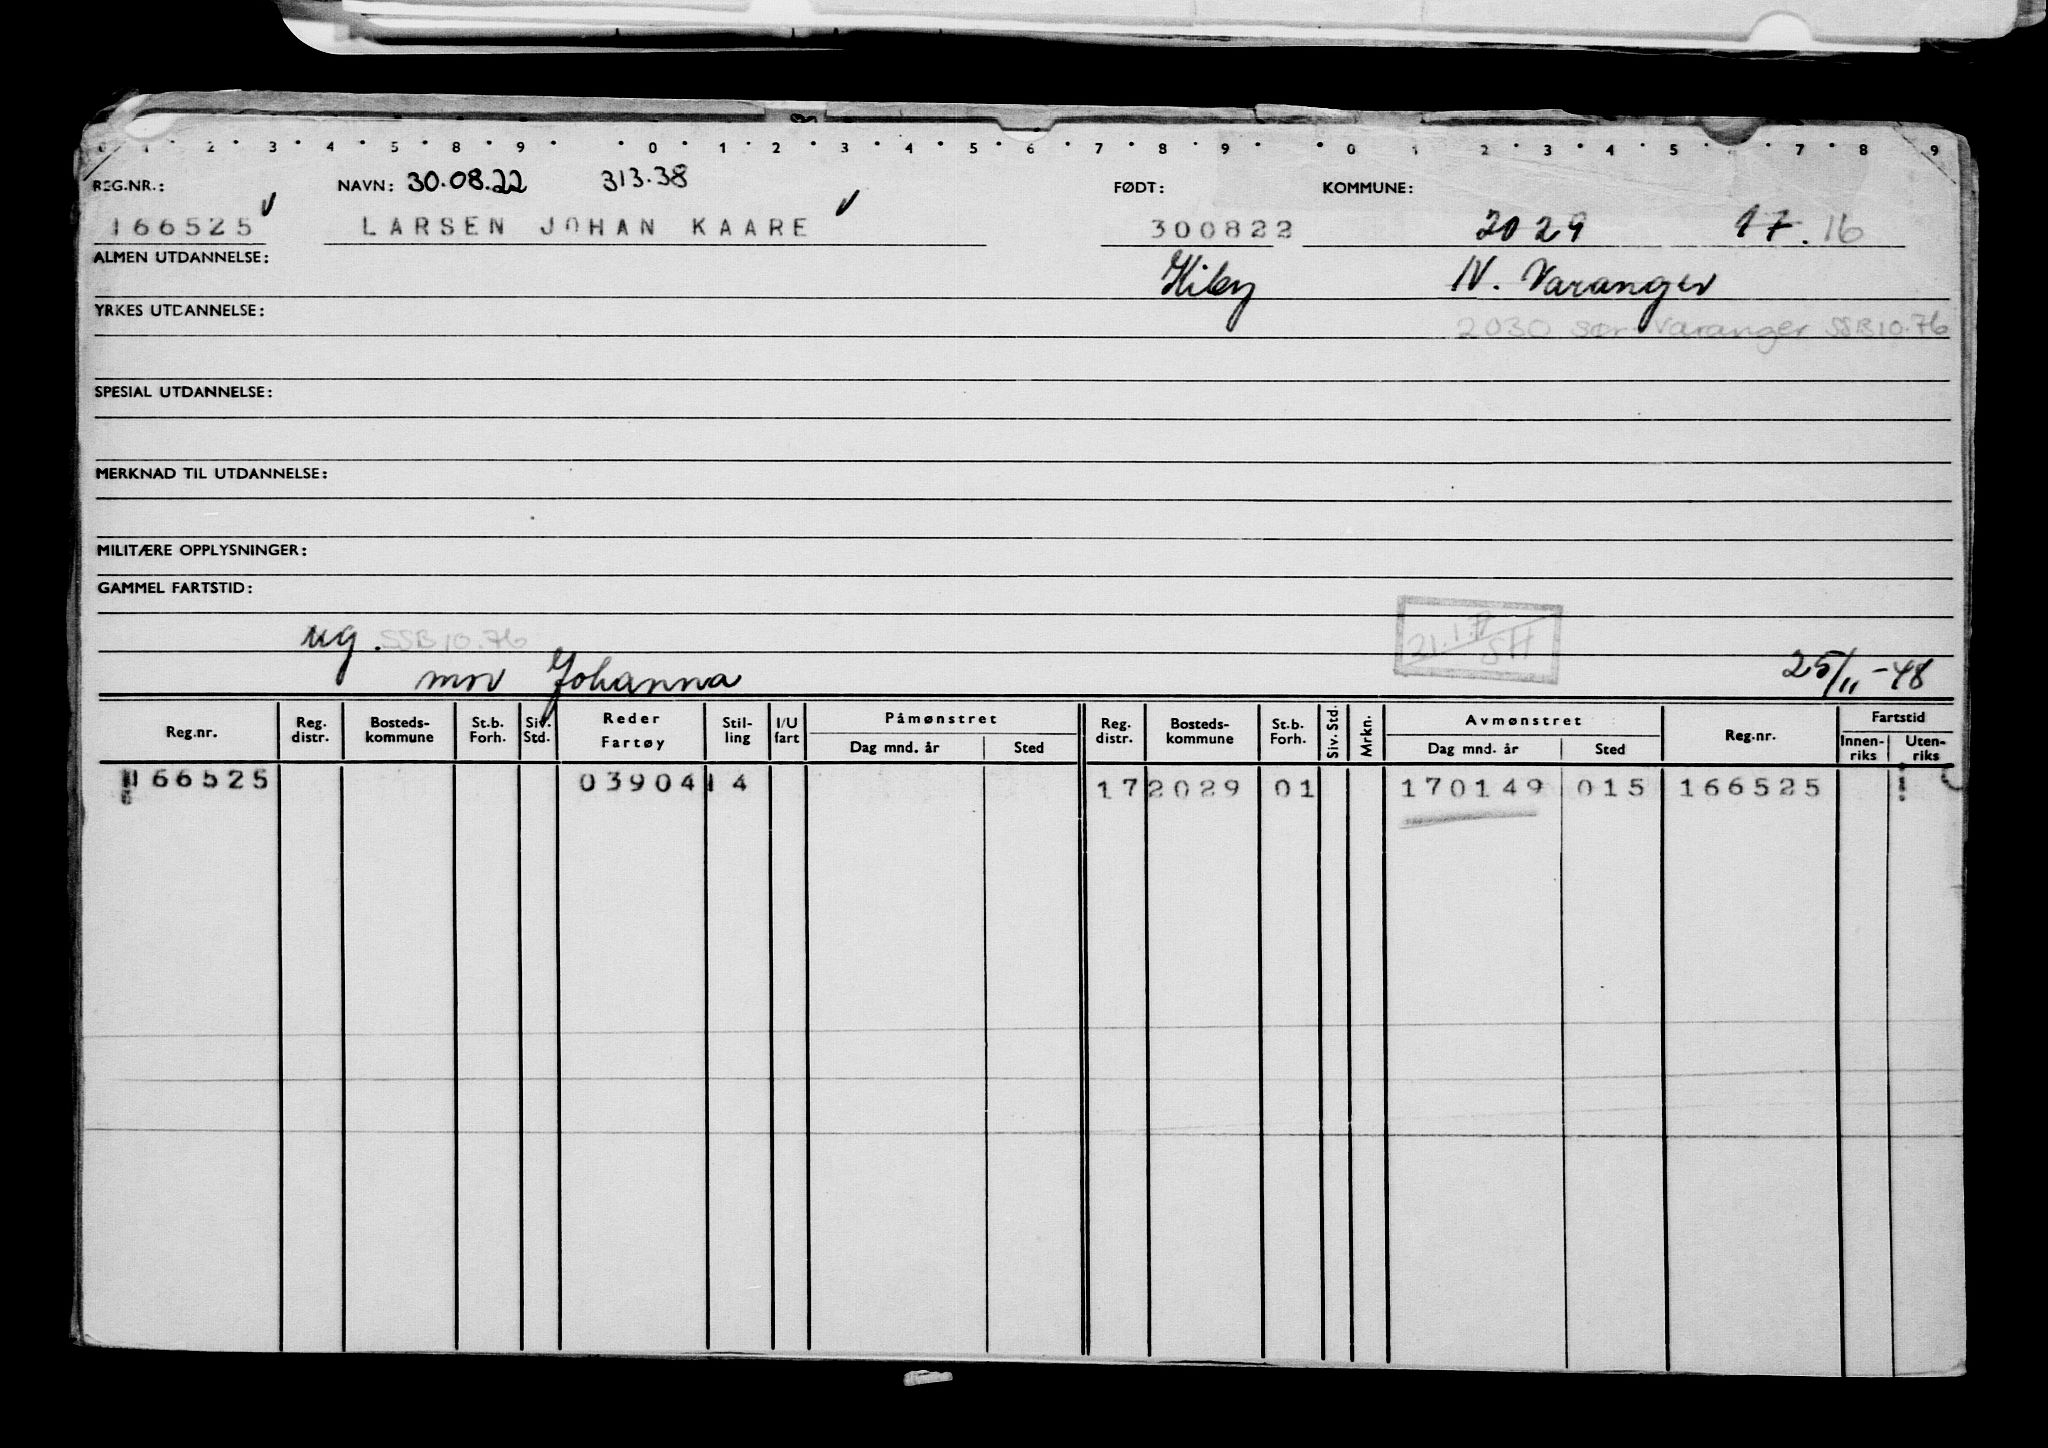 1 2 3 4 5 6 8 9 0 1 2 3 4 5 6 7 8 9 0 1 2 3 4 5 7 8 9
REG.NR.: NAVN: 30.08.22 313.38 FØDT: KOMMUNE:
166525 LARSEN JOHAN KAARE 300822 2029 17. 16
ALMEN UTDANNELSE: Kiby N. Varanger
YRKES UTDANNELSE: 2030 Sør-Varanger SSB 10.76
SPESIAL UTDANNELSE:
MERKNAD TIL UTDANNELSE:
MILITÆRE OPPLYSNINGER:
GAMMEL FARTSTID:
ug. SSB 10.76 SH
mor Johanna 25/11-48
Reg.nr. Reg. distr. Bosteds-kommune St.b. Forh. Siv. Std. Reder Fartøy Stil-ling I/U fart Påmønstret Dag mnd. år Sted Reg. distr. Bosteds-kommune St.b. Forh. Siv. Std. Mrkn. Avmønstret Dag mnd. år Sted Reg.nr. Fartstid Innen-riks Uten-riks
166525 039041 4 17 2029 01 170149 015 166525